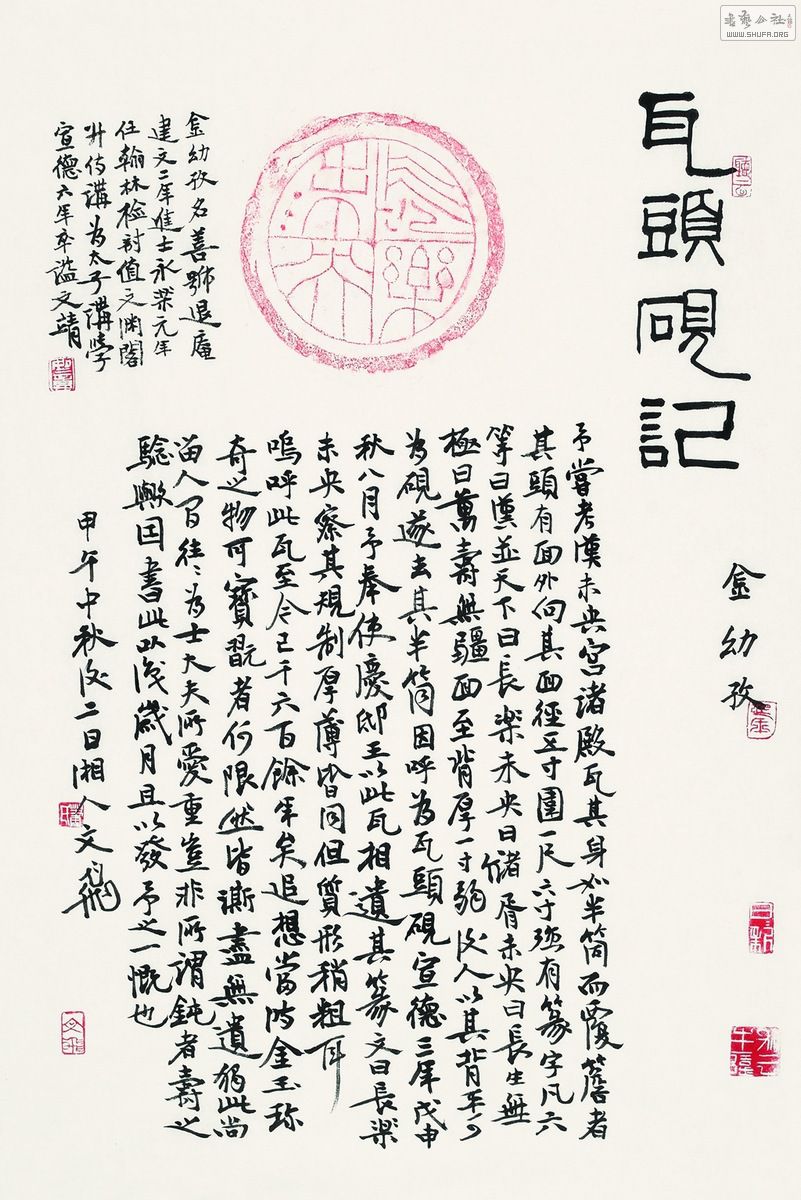 瓦頭硯記
金幼孜
予嘗考漢未央宮諸殿瓦其身如半筒而覆簷者
其頭有面外向其面徑五寸圍一尺六寸強有篆字凡六
等曰漢並天下曰長樂未央曰儲胥未央曰長生無
極曰萬壽無疆面至背厚一寸弱後人以其背平可
為硯遂去其半筒因呼為瓦頭硯宣德三年戊申
秋八月予奉使慶邸王以此瓦相遺其篆文曰長樂
未央察其規制厚薄皆同但質形稍粗耳
嗚呼此瓦至今已千六百餘年矣追想當時金玉珍
奇之物可寶翫者何限然皆澌盡無遺獨此尚
留人間往〻為士大夫所愛重豈非所謂鈍者壽之
驗歟因書此以識歲月且以發予之一慨也
甲午中秋後二日湘人文飛
長樂未央
金幼孜名善號退庵
建文二年進士永樂元年
任翰林檢討值文淵閣
升侍講為太子講學
宣德六年卒謚文靖
書藝公社
WWW.SHUFA.ORG